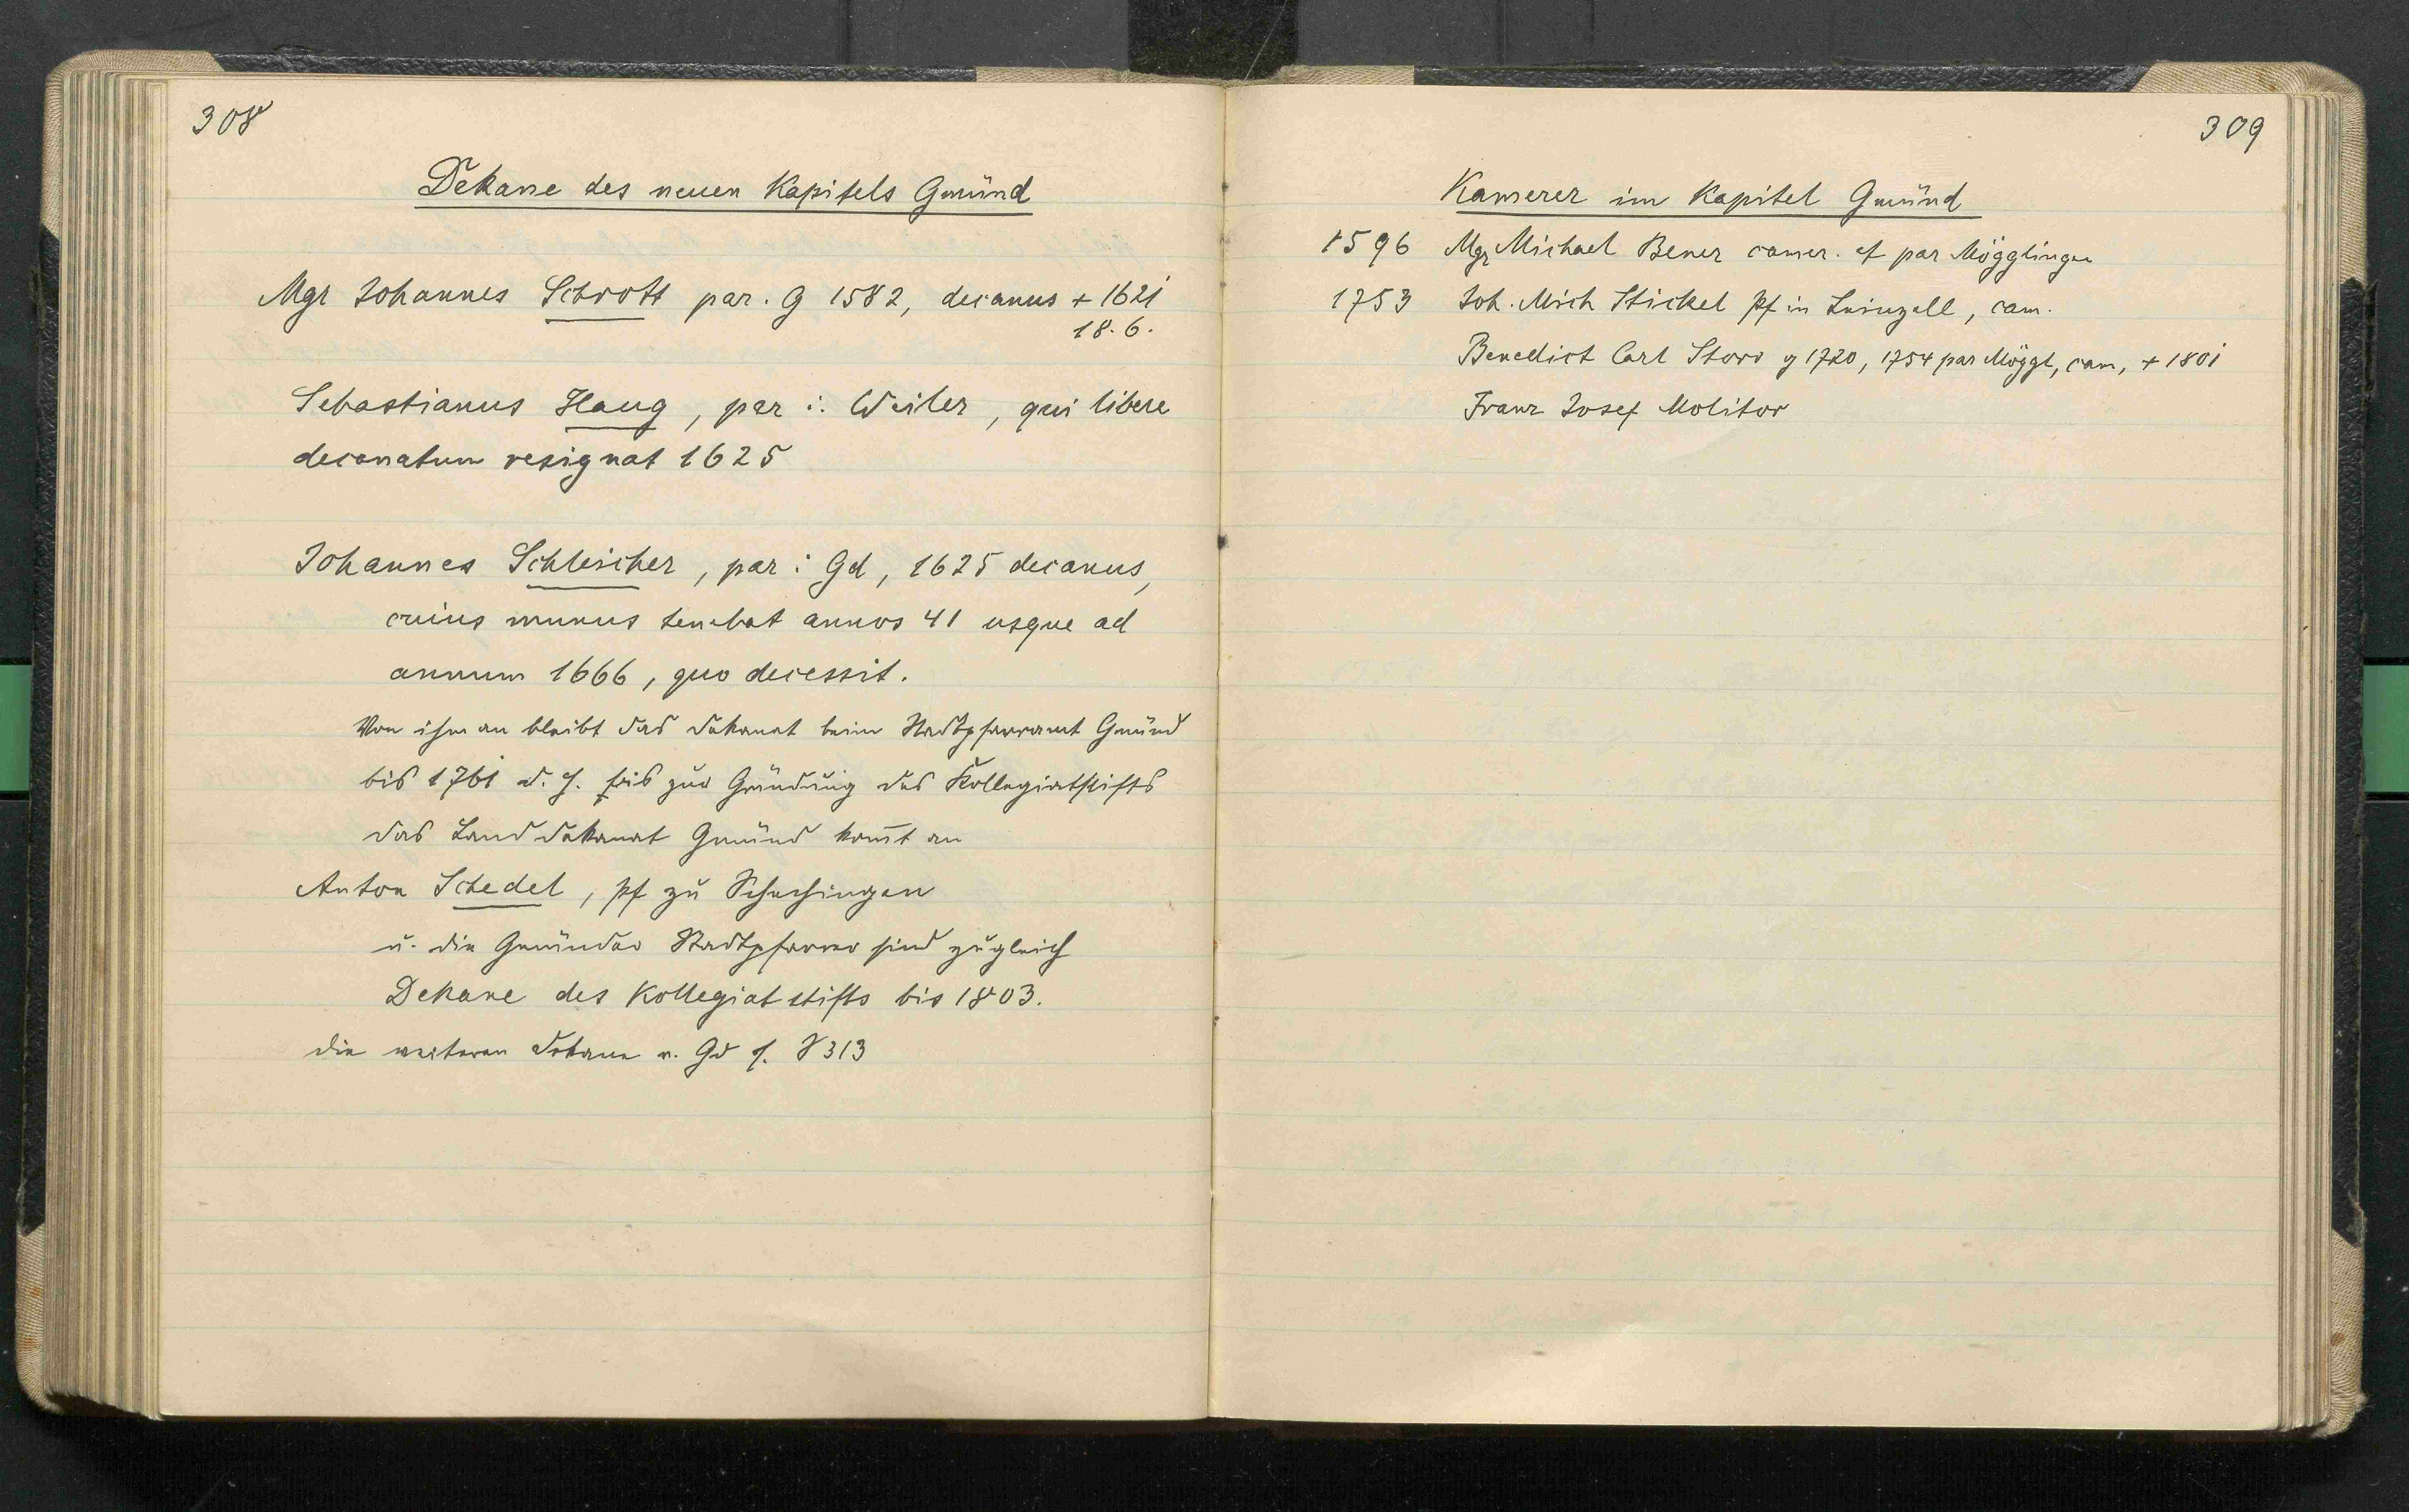 308
Dekane des neuen Kapitels Gmünd
Mgr Johannes Schrott par. G 1582, decanus + 1621
18. 6.
Sebastianus Haug, par i. Weiler, qui libere
decanatum resignat 1625
Johannes Schleicher, par i Gd, 1625 decanus,
cuius munus tenebat annos 41 usque ad
annum 1666, quo decessit.
Von ihm an bleibt das Dekanat beim Stadtpfarramt Gmünd
bis 1761 d. h. bis zur Gründung des Kollegiatstifts
das Landdekanat Gmünd kom̄t an
Anton Schedel, pf zu Schechingen
u. die Gmünder Stadtpfarrer sind zugleich
Dekane des Kollegiatstifts bis 1803.
die weiteren Dekane v. Gd s. S 313
309
Kamerer im Kapitel Gmünd
1596 Mgr Michael Bener camer. et par Mögglingen
1753 Joh. Mich Stickel pf in Leinzell, cam.
Benedict Carl Storr g 1720, 1754 par Möggl, cam, + 1801
Franz Josef Molitor